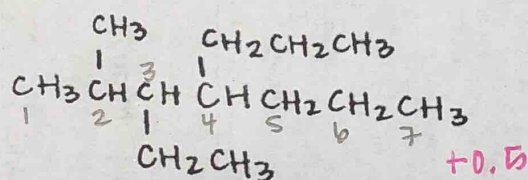 CH3 CH2CH2CH3
3
CH3CHCH CHCH2CH2CH3
1 2 4 5 6 7
CH2CH3 +0.5